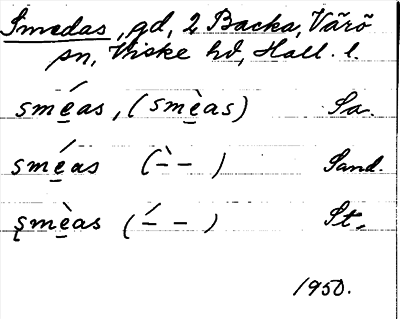 Smedas, gd, 2 Backa, Värö
sn, Viske hd, Hall. l.
smé̲as, (smè̲as) Sa.
smé̲as (`– –) Sand.
şmè̲as (´– –) St.
1950.